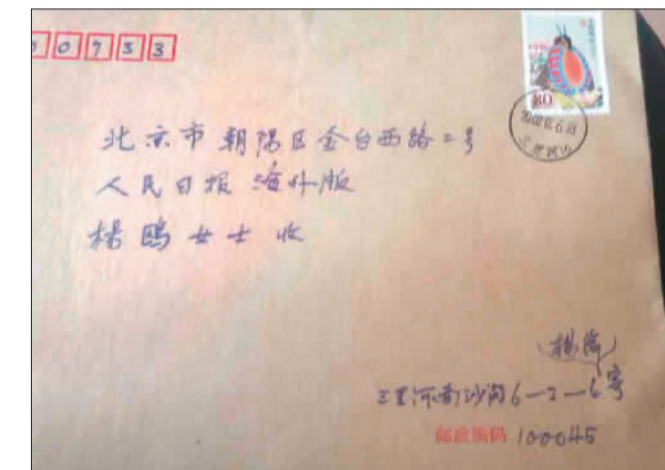 00733
80
北京市朝阳区金台西路二号
人民日报 海外版
杨鸥女士 收
杨
三里河南沙沟6-2-6寄
邮政编码 100045